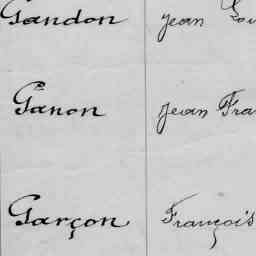 Gandon Jean Lou
Ganon Jean Fra
Garçon François